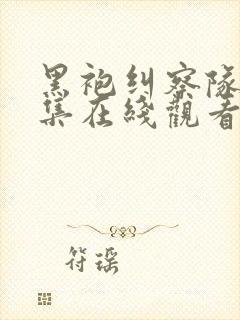 黑袍纠察队
集在线觀看
符瑶